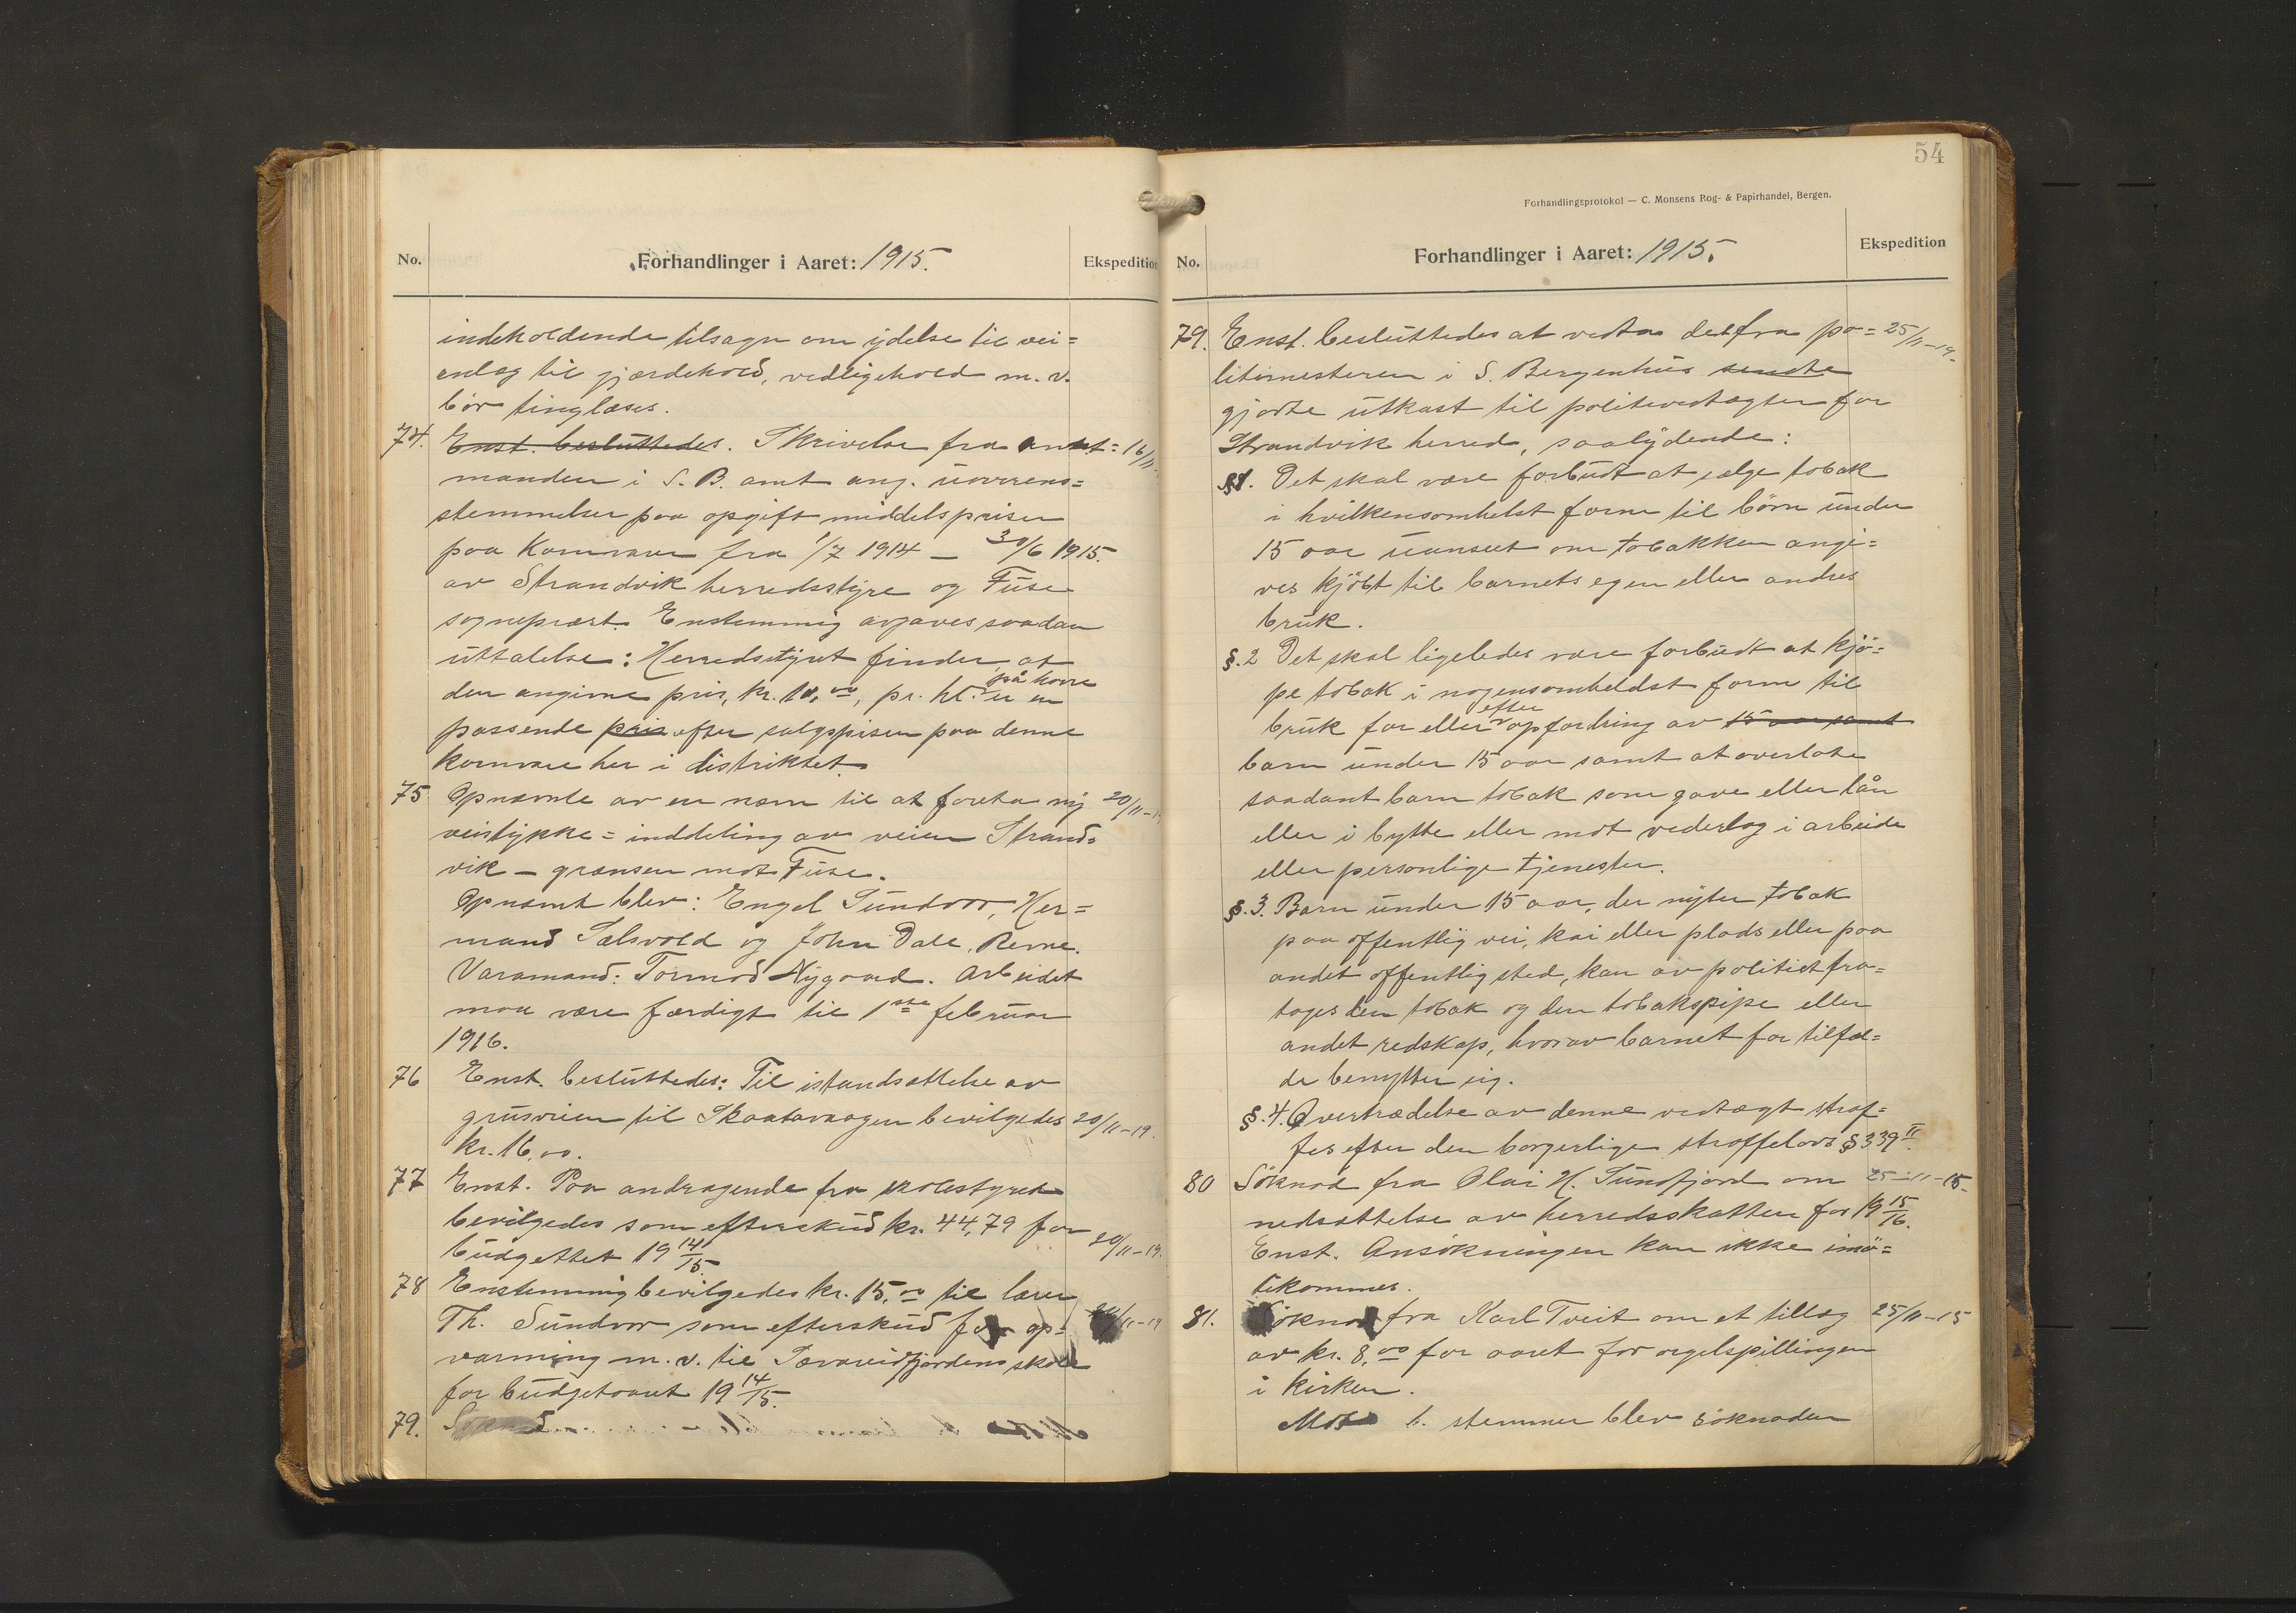 No.
Forhandlinger i Aaret: 1915.
Ekspedition
indeholdende tilsagn om ydelse til vei=
anlæg til gjærdehold, vedligehold m.v.
bör tinglæses.
74. Enst. besluttedes. Skrivelse fra amt= 16/11
manden i S. B. amt ang. uoverens=
stemmelser paa opgift middelspriser
paa Kornvarer fra 1/7 1914 — 30/6 1915.
av Strandvik herredsstyre og Fuse
sogneprest. Enstemmig avgaves saadan
uttalelse: Herredsstyret finder, at
den angivne pris, kr. 10,00, pr. hl. på havre er en
passende pris efter salgsprisen paa denne
kornvare her i distriktet.
75 Opnævnte av en nævn til at foreta ny 20/11-1
veistykke=inddeling av veien Strand=
vik — grænsen mot Fuse.
Opnævnt blev: Engel Sundvor, Her=
mand Sælsvold og John Dale, Revne.
Varamand: Tormod Nygaard. Arbeidet
maa være færdigt til 1ste februar
1916.
76 Enst. besluttedes: Til istandsættelse av
grusveien til Skaatavaagen bevilgedes 20/11-19.
kr. 16,00.
77 Enst. Paa andragende fra skolestyret
bevilgedes som efterskud kr. 44,79 for
budgettet 19 14/15. 20/11-19.
78 Enstemmig bevilgedes kr. 15,00 til lærer
Th. Sundvor som efterskud for op= /11-19
varming m.v. til Sævareidfjordens skole
for budgetaaret 19 14/15.
79. Söknad
54
Forhandlingsprotokol — C. Monsens Bog- & Papirhandel, Bergen.
No.
Forhandlinger i Aaret: 1915.
Ekspedition
79. Enst. besluttedes at vedta det fra po= 25/11-19.
litimesteren i S. Bergenhus sendte
gjorte utkast til politivedtægter for
Strandvik herred, saalydende:
§1. Det skal være forbudt at sælge tobak
i hvilkensomhelst form til börn under
15 aar uanseet om tobakken angi=
ves kjöbt til barnets egen eller andres
bruk.
§.2 Det skal ligeledes være forbudt at kjö=
pe tobak i nogensomheldst form til
bruk for eller efter opfordring av 15 aar samt
barn under 15 aar samt at overlate
saadant barn tobak som gave eller lån
eller i bytte eller mot vederlag i arbeide
eller personlige tjenester.
§.3. Barn under 15 aar, der nyter tobak
paa offentlig vei, kai eller plads eller paa
andet offentlig sted, kan av politiet fra=
tages den tobak og den tobakspipe eller
andet redskap, hvorav barnet for tilfæl=
de benytter sig.
§.4. Overtrædelse av denne vedtægt straf=
fes efter den borgerlige straffelovs § 339 II.
80 Söknad fra Olai H. Sundfjord om 25-11-15.
nedsættelse av herredsskatten for 19 15/16.
Enst. Ansökningen kan ikke imö=
tekommes.
81. Söknad fra Karl Tveit om et tillæg 25/11-15
av kr. 8,00 for aaret for orgelspillingen
i kirken.
Mot 6. stemmer blev söknaden